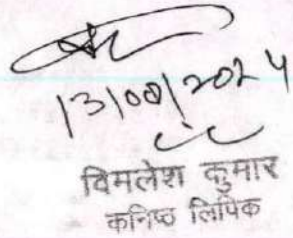 13/08/2024
विमलेश कुमार
कनिष्ठ लिपिक